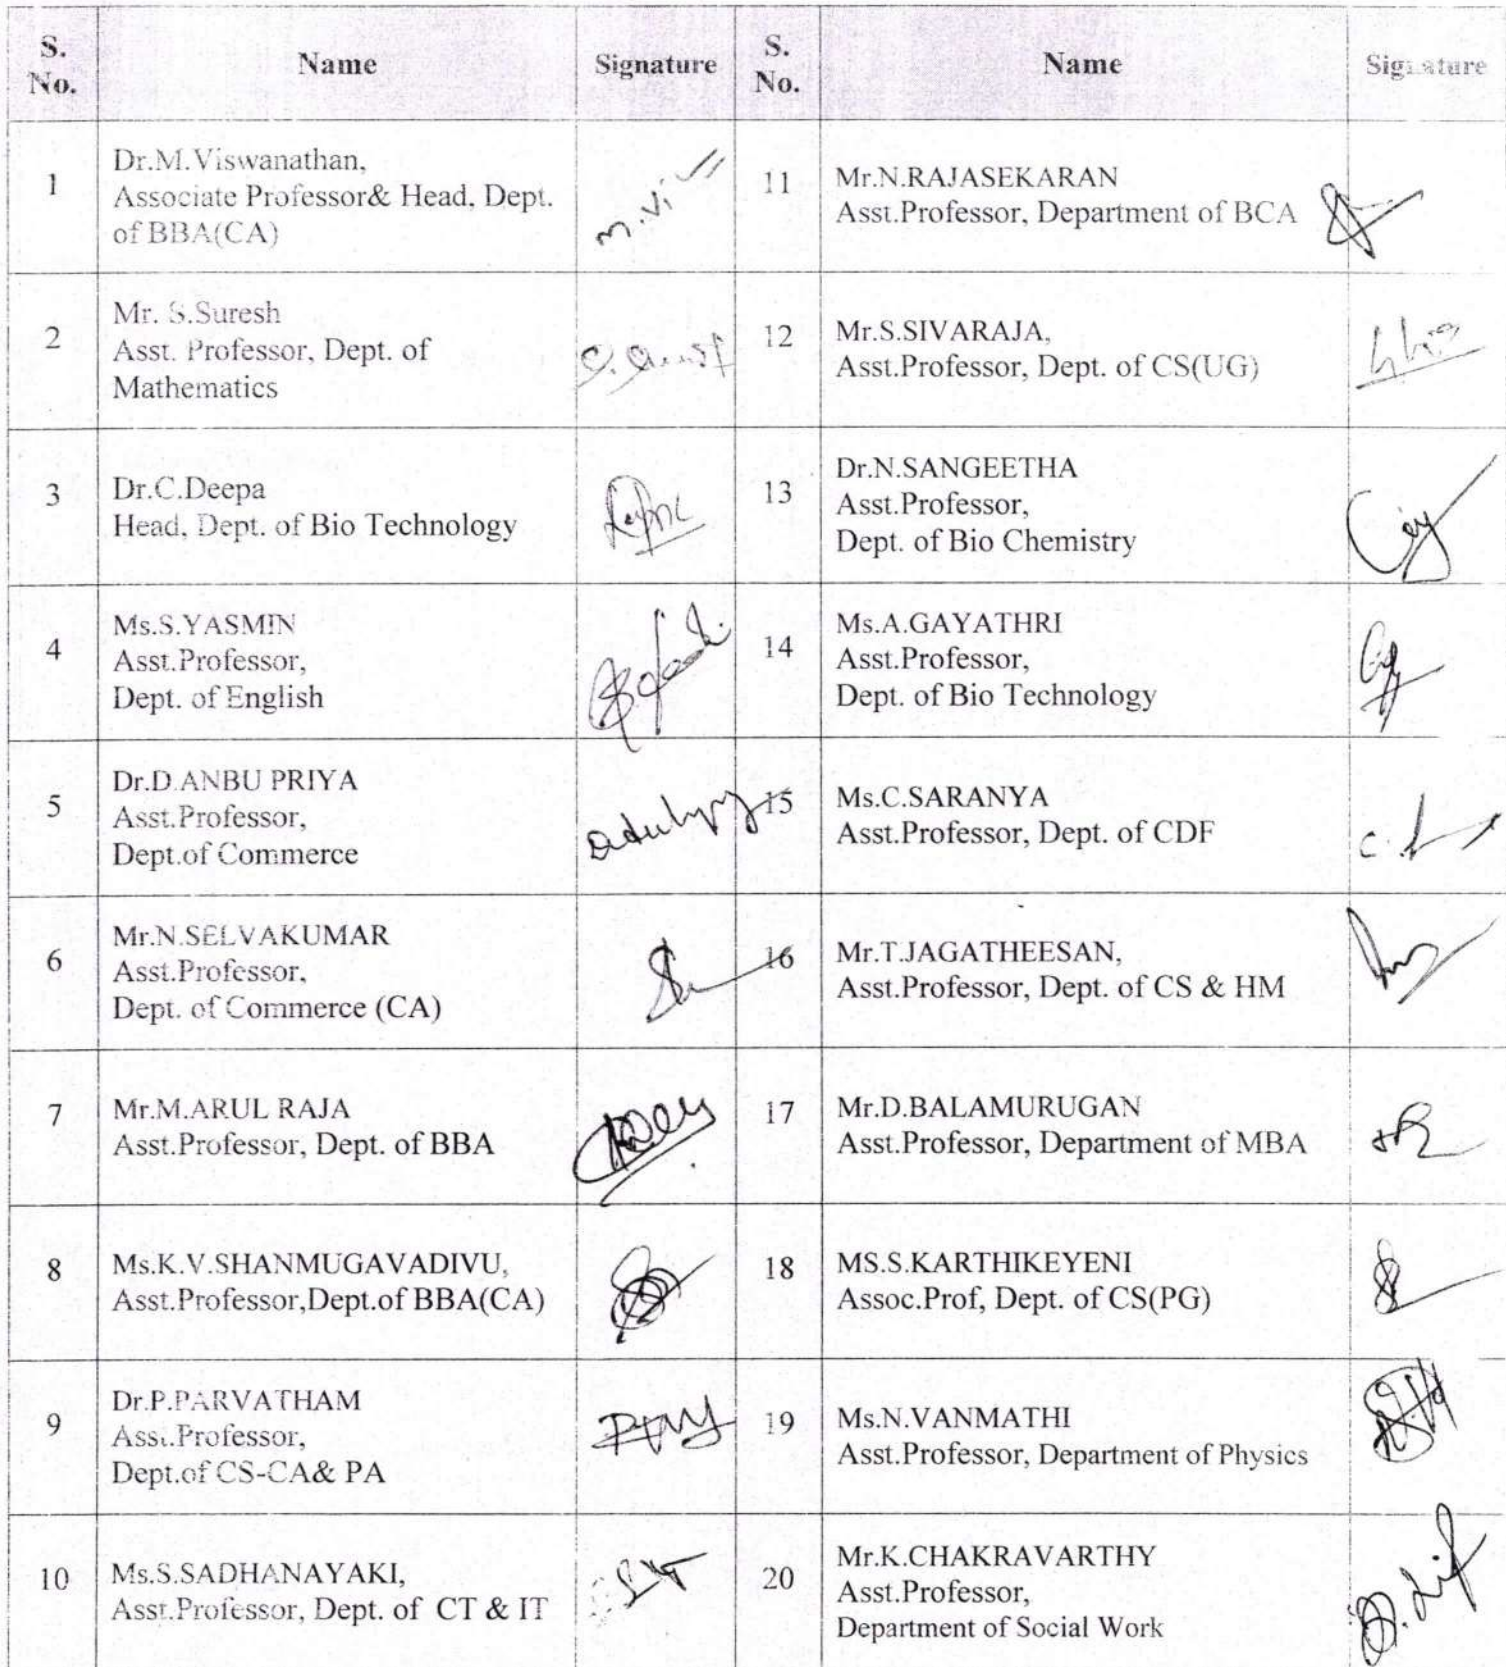 S.
No.
Name
Signature
S.
No.
Name
Signature
1
Dr.M.Viswanathan,
Associate Professor& Head, Dept.
of BBA(CA)
m.Vi
11
Mr.N.RAJASEKARAN
Asst.Professor, Department of BCA
2
Mr. S.Suresh
Asst. Professor, Dept. of
Mathematics
12
Mr.S.SIVARAJA,
Asst.Professor, Dept. of CS(UG)
3
Dr.C.Deepa
Head, Dept. of Bio Technology
13
Dr.N.SANGEETHA
Asst.Professor,
Dept. of Bio Chemistry
4
Ms.S.YASMIN
Asst.Professor,
Dept. of English
14
Ms.A.GAYATHRI
Asst.Professor,
Dept. of Bio Technology
5
Dr.D.ANBU PRIYA
Asst.Professor,
Dept.of Commerce
15
Ms.C.SARANYA
Asst.Professor, Dept. of CDF
6
Mr.N.SELVAKUMAR
Asst.Professor,
Dept. of Commerce (CA)
16
Mr.T.JAGATHEESAN,
Asst.Professor, Dept. of CS & HM
7
Mr.M.ARUL RAJA
Asst.Professor, Dept. of BBA
17
Mr.D.BALAMURUGAN
Asst.Professor, Department of MBA
8
Ms.K.V.SHANMUGAVADIVU,
Asst.Professor,Dept.of BBA(CA)
18
MS.S.KARTHIKEYENI
Assoc.Prof, Dept. of CS(PG)
9
Dr.P.PARVATHAM
Asst.Professor,
Dept.of CS-CA& PA
19
Ms.N.VANMATHI
Asst.Professor, Department of Physics
10
Ms.S.SADHANAYAKI,
Asst.Professor, Dept. of CT & IT
20
Mr.K.CHAKRAVARTHY
Asst.Professor,
Department of Social Work